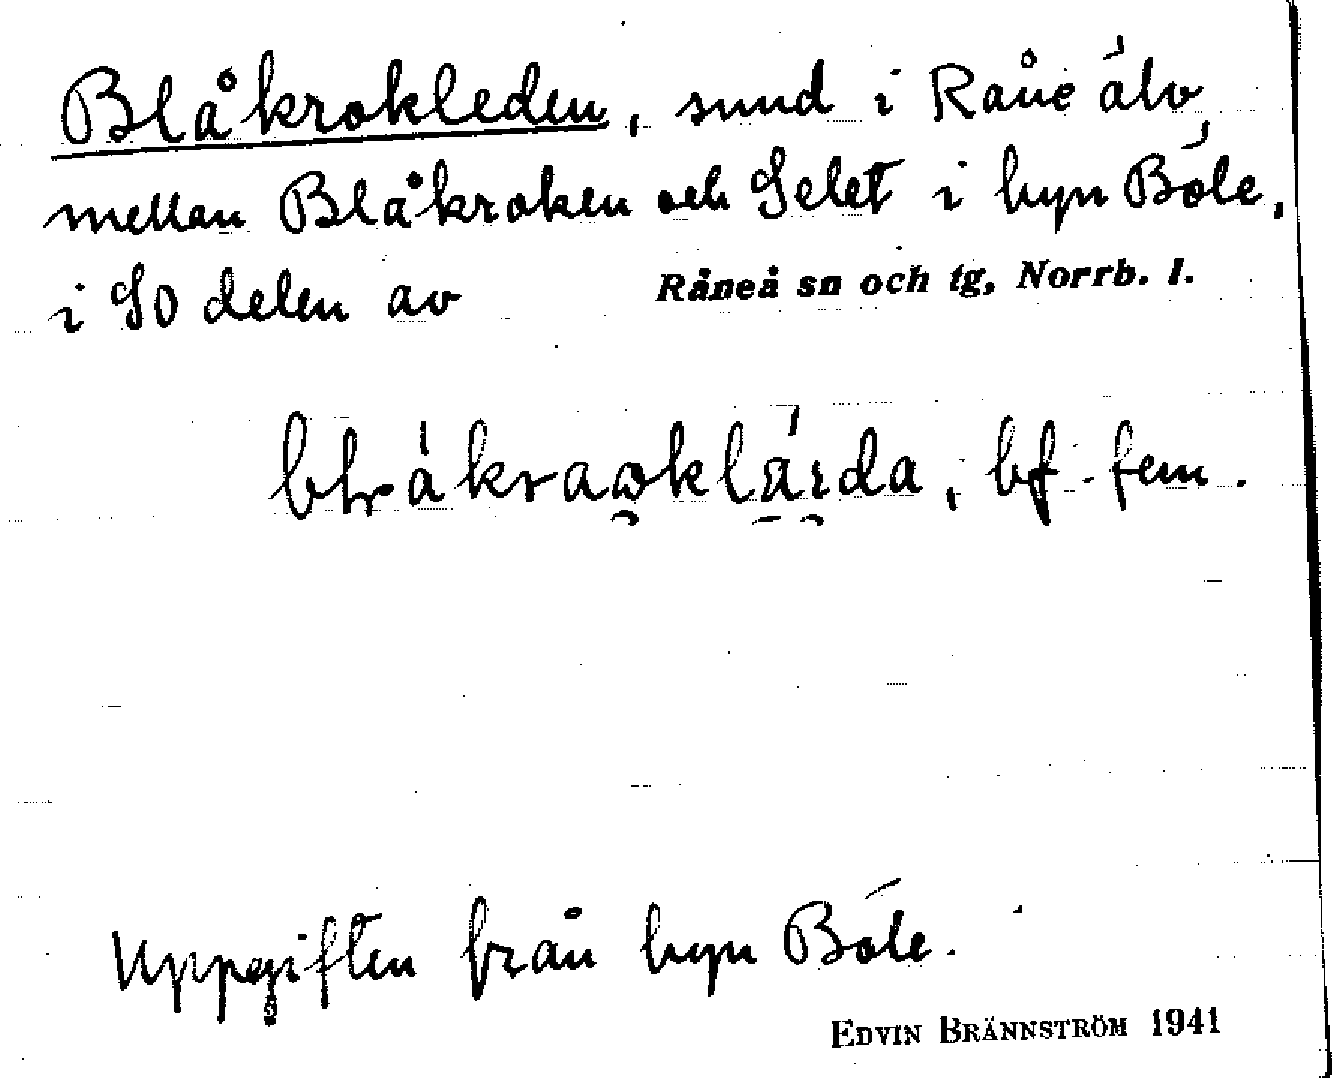 Blåkrokleden, sund i Råne älv,
mellan Blåkroken och Selet i byn Böle,
i SO delen av Råneå sn och tg, Norrb. l.
bf. fem.
Uppgiften från byn Böle.
EDVIN BRÄNNSTRÖM 1941